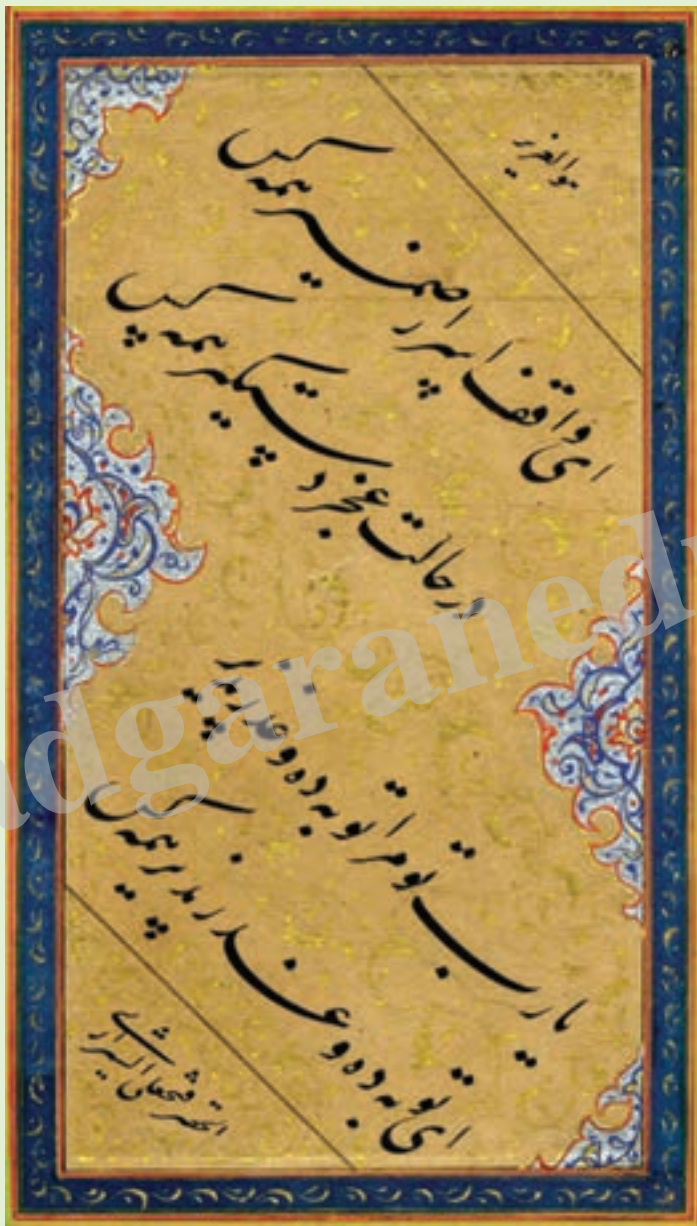 هو العزیز
ای واقف اسرار ضمیر همه کس
در حالت عجز دستگیر همه کس
یا رب تو مرا توبه ده و عذر پذیر
ای توبه ده و عذر پذیر همه کس
فتحعلی الشیرازی
adgaraned